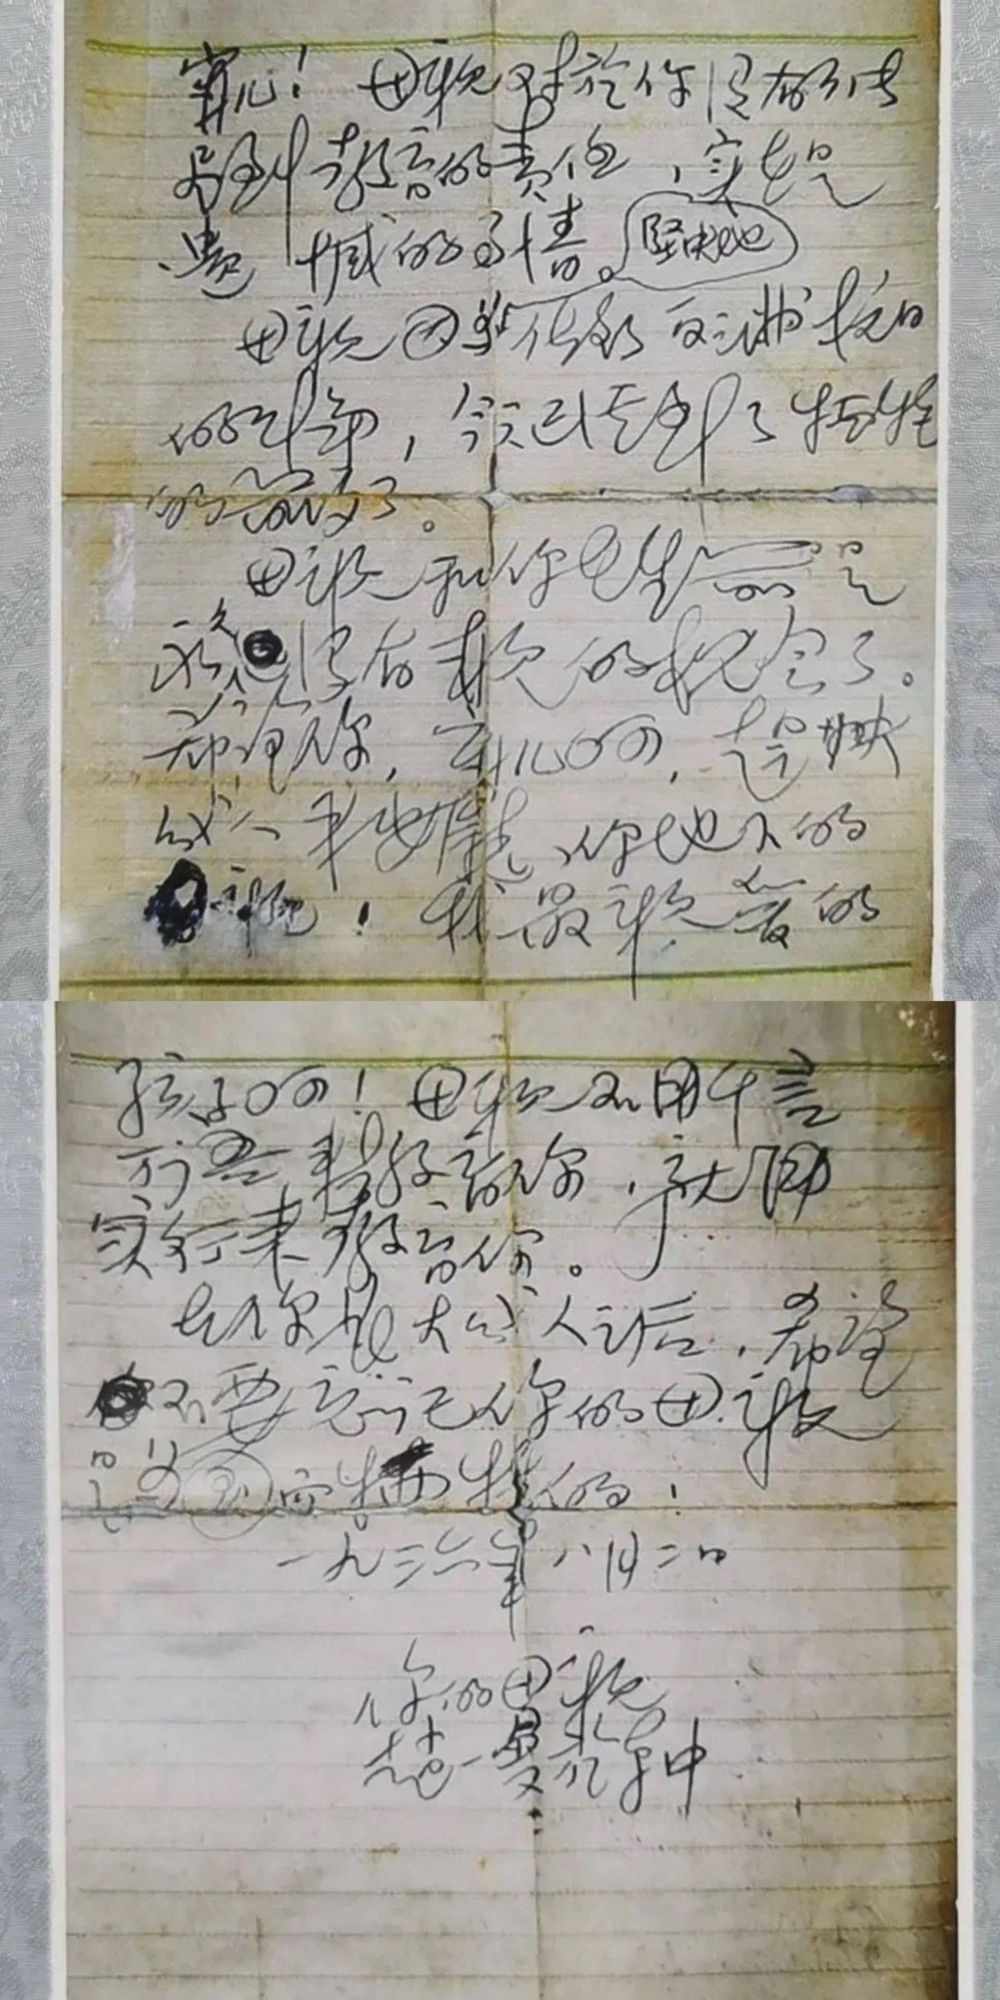 寧儿！母親对於你没有能
尽到教育的責任，实在是
遺憾的事情。
坚决地
母親因为做了反满抗日
的斗争，今天已经到了牺牲
的前夕了。
母親和你在生前是
永久没有再見的机会了。
希望你，宁儿啊，赶快
成人，来安慰你地下的
母親！我最親爱的
孩子啊！母親不用千言
万语来教育你，就用
实行来教育你。
在你長大成人之后，希望
不要忘记你的母親
是为国而牺牲的！
一九三六年八月二日
你的母親
赵一曼於車中